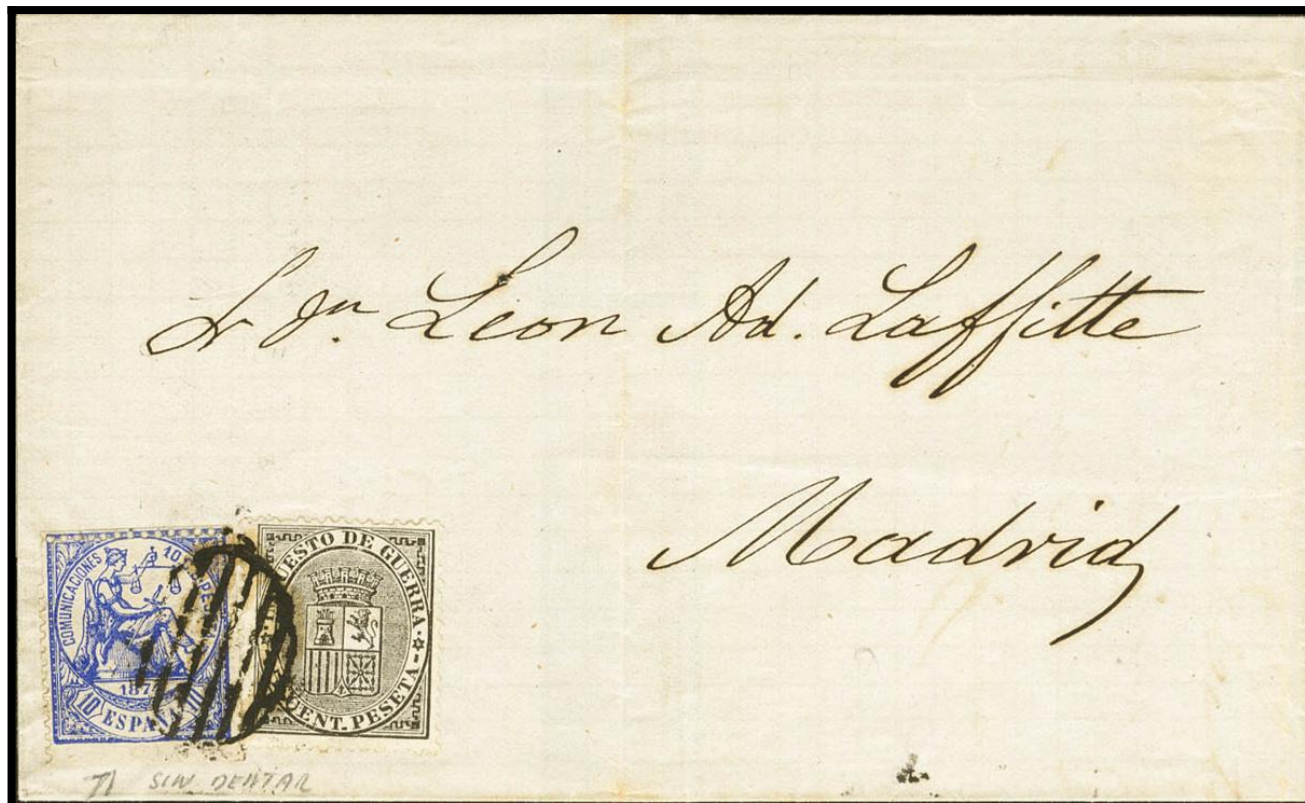 Sr Dn. Leon Ad. Laffitte
Madrid
COMUNICACIONES 10
1874
10 ESPAÑA
ESTO DE GUERRA
CENT. PESETA
SIN DENTAR